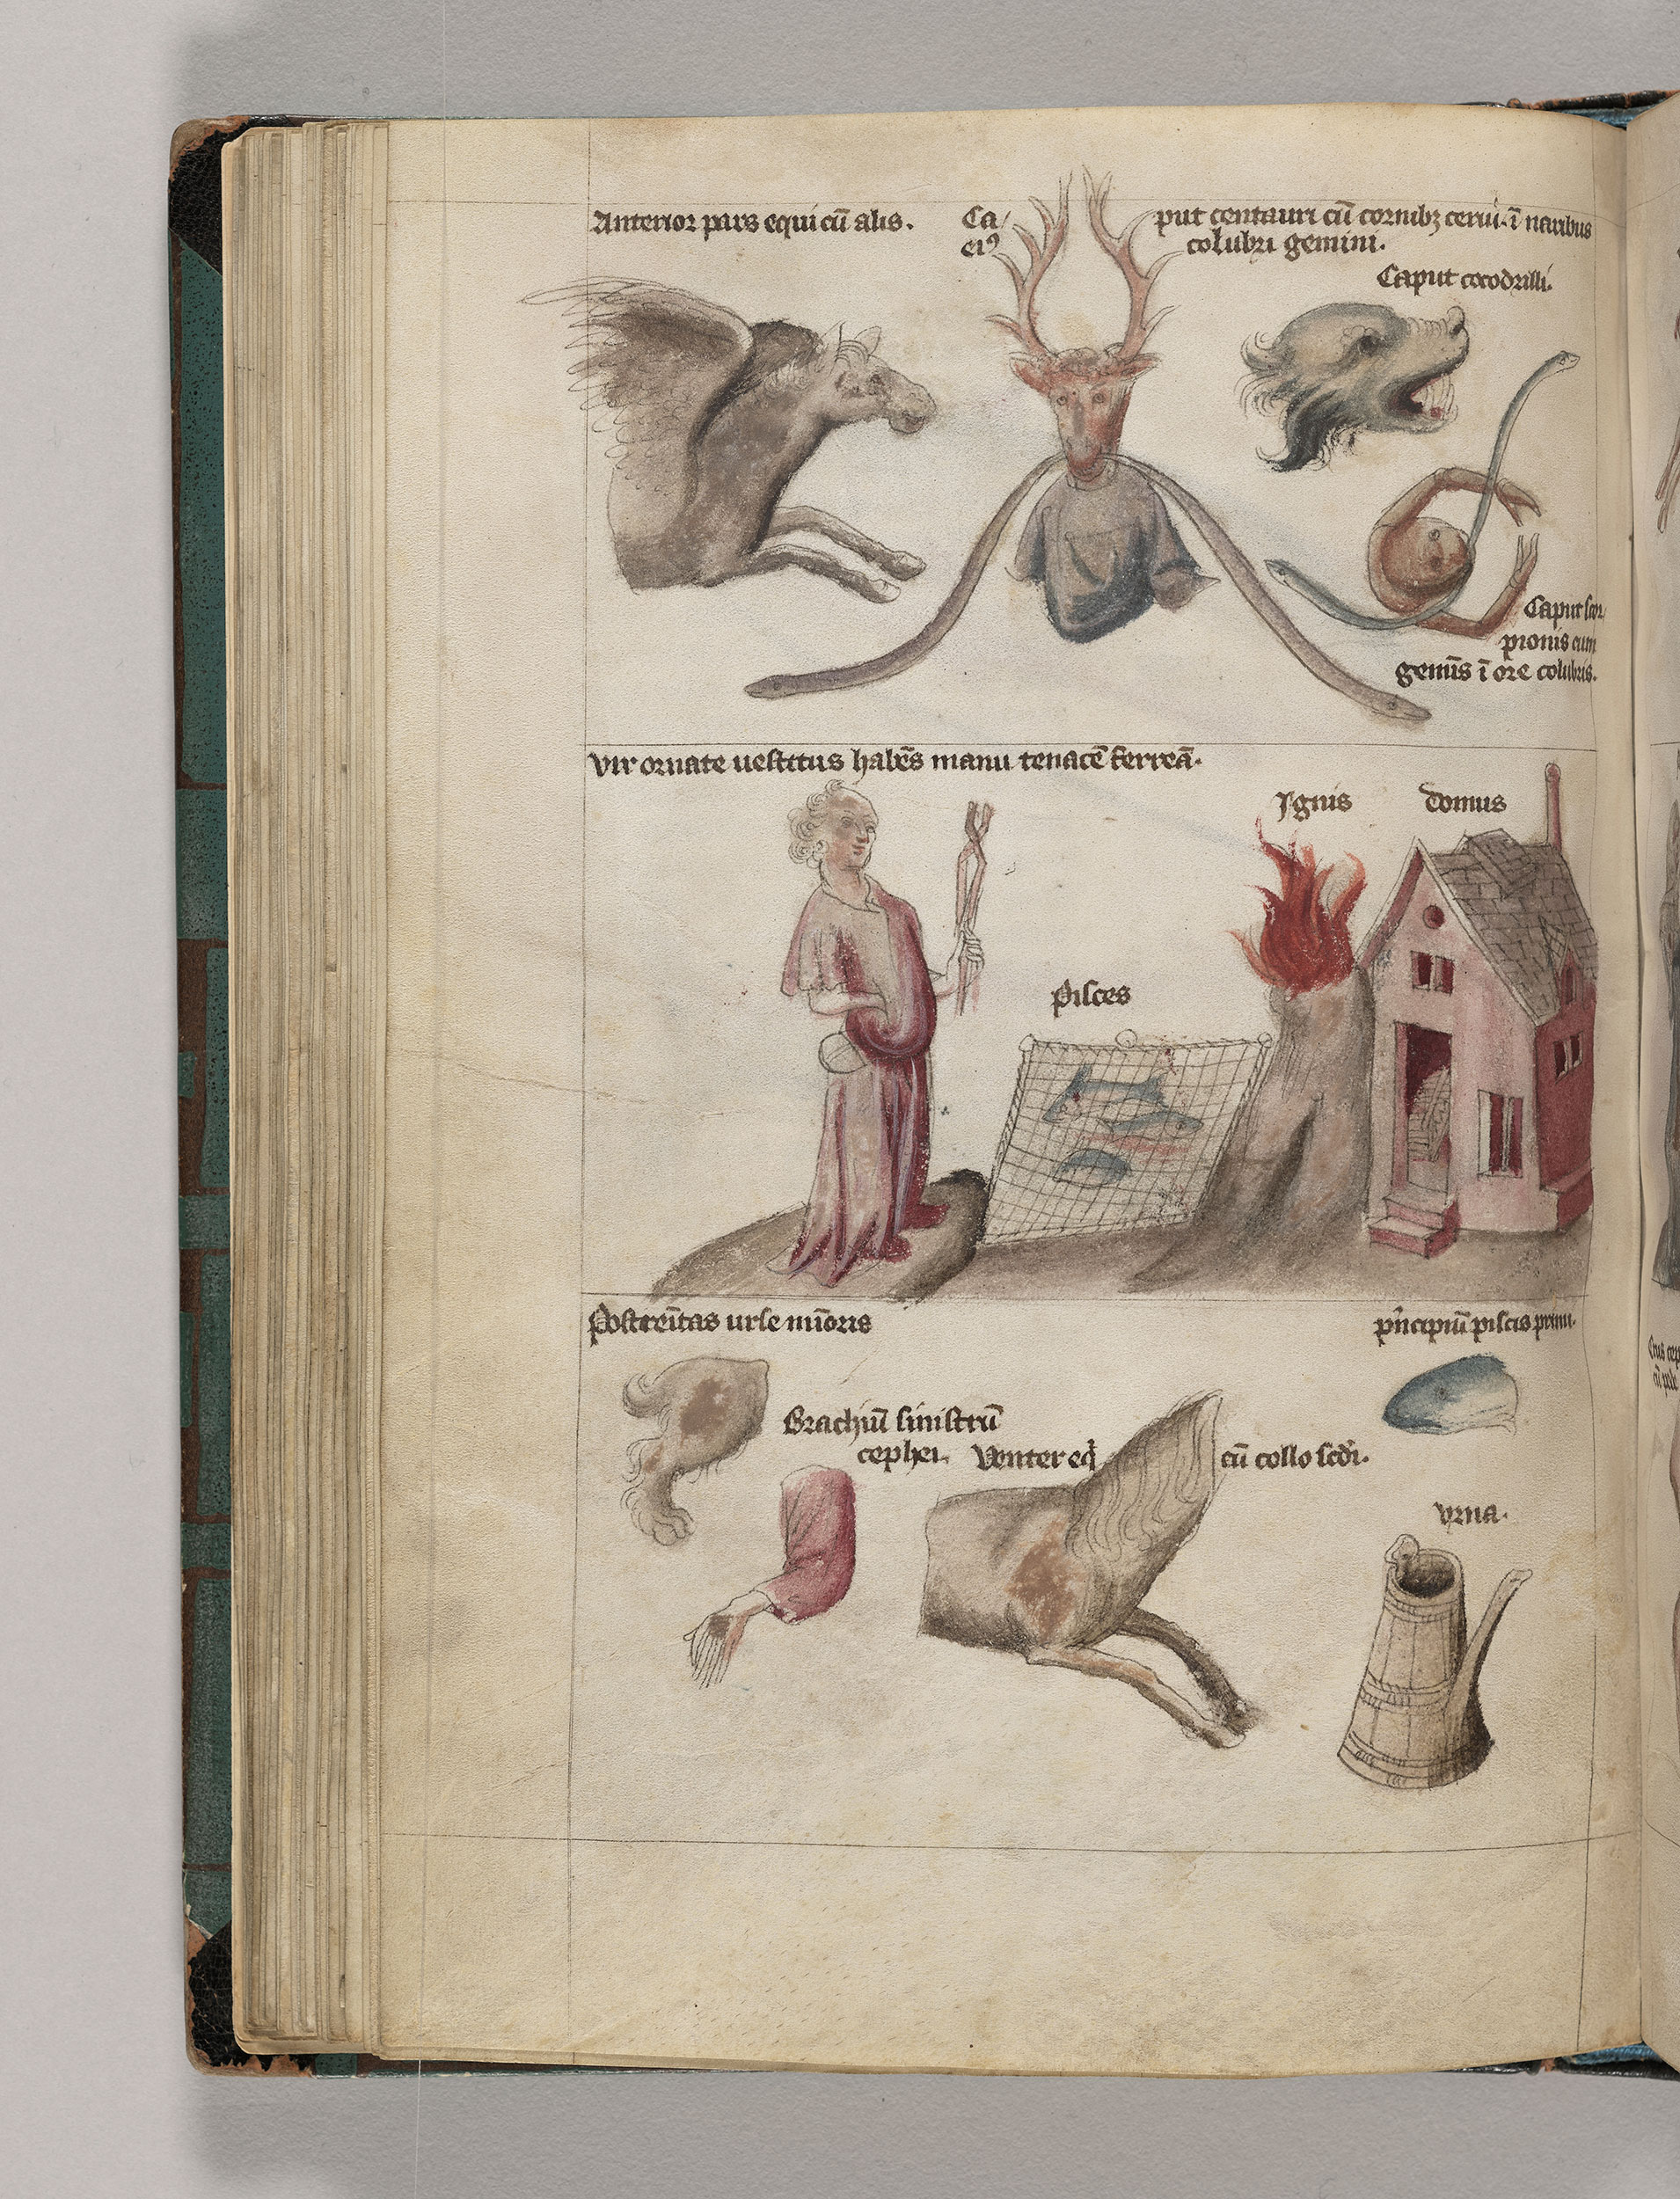 Anterior pars equi cū alis.
Ca/put centauri cū cornibꝫ cerui. ī naribus
eiꝯ colubri gemini.
Caput cocodrilli.
Caput scor/
pionis cum
gemīs ī ore colubris.
Vir ornate uestitus habēs manu tenacē ferreā.
Ignis domus
pisces
Postreītas urse mīoris
pͥncipiū piscis primi.
Brachiū sinistrū
cephei. Venter eqͥ cū collo scđi.
vrna.